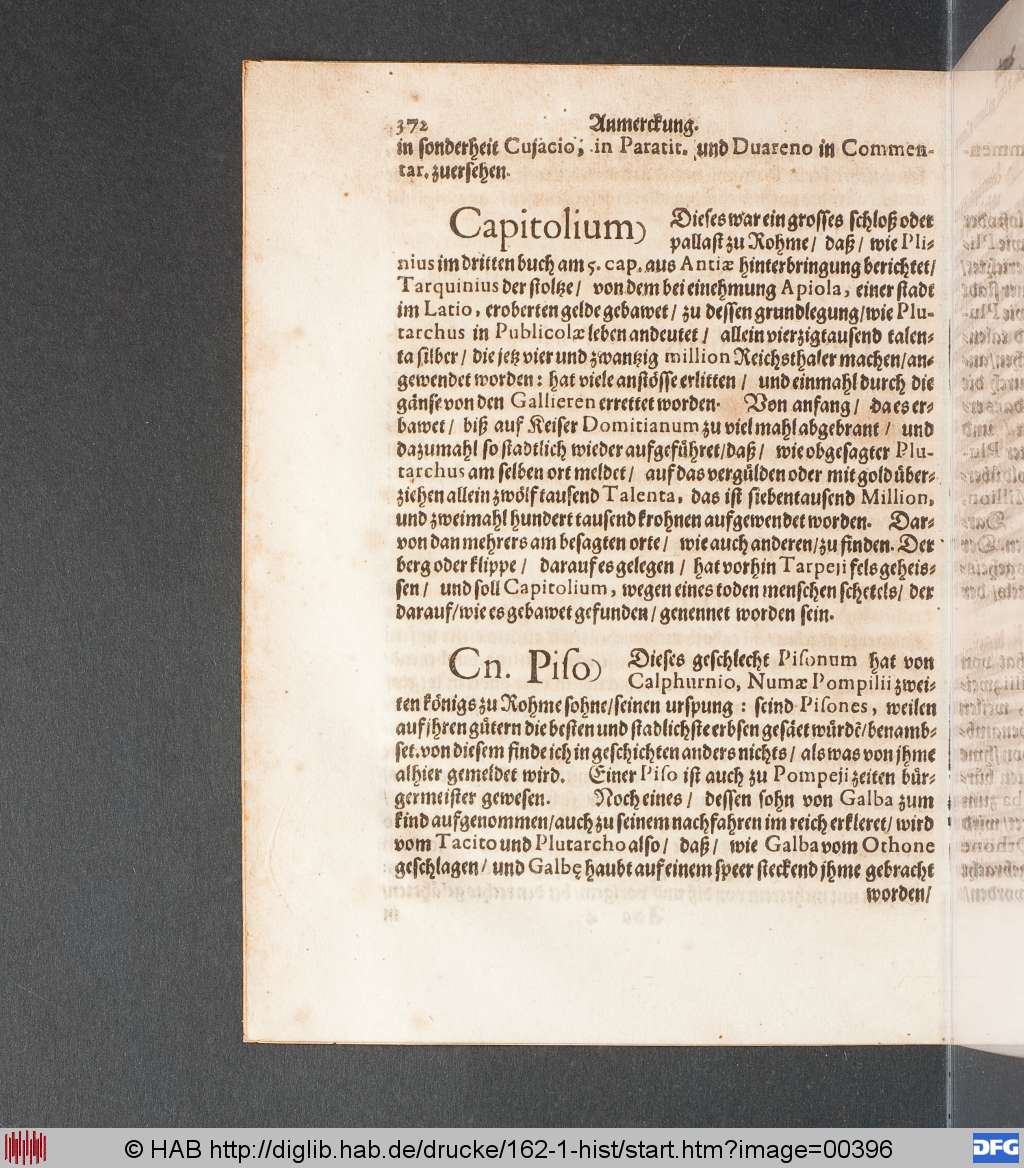 372 Anmerckung.
in sonderheit Cujacio, in Paratit. und Duareno in Commen-
tar. zuersehen.
Capitolium) Dieses war ein grosses schloß oder
pallast zu Rohme / daß / wie Pli-
nius im dritten buch am 5. cap. aus Antiæ hinterbringung berichtet /
Tarquinius der stoltze / von dem bei einehmung Apiola, einer stadt
im Latio, eroberten gelde gebawet / zu dessen grundlegung / wie Plu-
tarchus in Publicolæ leben andeutet / allein vierzigtausend talen-
ta silber / die jetz vier und zwantzig million Reichsthaler machen / an-
gewendet worden: hat viele anstösse erlitten / und einmahl durch die
gänse von den Gallieren errettet worden. Von anfang / da es er-
bawet / biß auf Keiser Domitianum zu viel mahl abgebrant / und
dazumahl so stadtlich wieder aufgeführet / daß / wie obgesagter Plu-
tarchus am selben ort meldet / auf das vergülden oder mit gold über-
ziehen allein zwölf tausend Talenta, das ist siebentausend Million,
und zweimahl hundert tausend krohnen aufgewendet worden. Dar-
von dan mehrers am besagten orte / wie auch anderen / zu finden. Der
berg oder klippe / darauf es gelegen / hat vorhin Tarpeji fels geheis-
sen / und soll Capitolium, wegen eines toden menschen schetels / der
darauf / wie es gebawet gefunden / genennet worden sein.
Cn. Piso) Dieses geschlecht Pisonum hat von
Calphurnio, Numæ Pompilii zwei-
ten königs zu Rohme sohne / seinen urspung: seind Pisones, weilen
auf jhren gütern die besten und stadlichste erbsen gesäet würdẽ / benamb-
set. von diesem finde ich in geschichten anders nichts / als was von jhme
alhier gemeldet wird. Einer Piso ist auch zu Pompeji zeiten bür-
germeister gewesen. Noch eines / dessen sohn von Galba zum
kind aufgenommen / auch zu seinem nachfahren im reich erkleret / wird
vom Tacito und Plutarcho also / daß / wie Galba vom Othone
geschlagen / und Galbę haubt auf einem speer steckend jhme gebracht
worden /
© HAB http://diglib.hab.de/drucke/162-1-hist/start.htm?image=00396
DFG